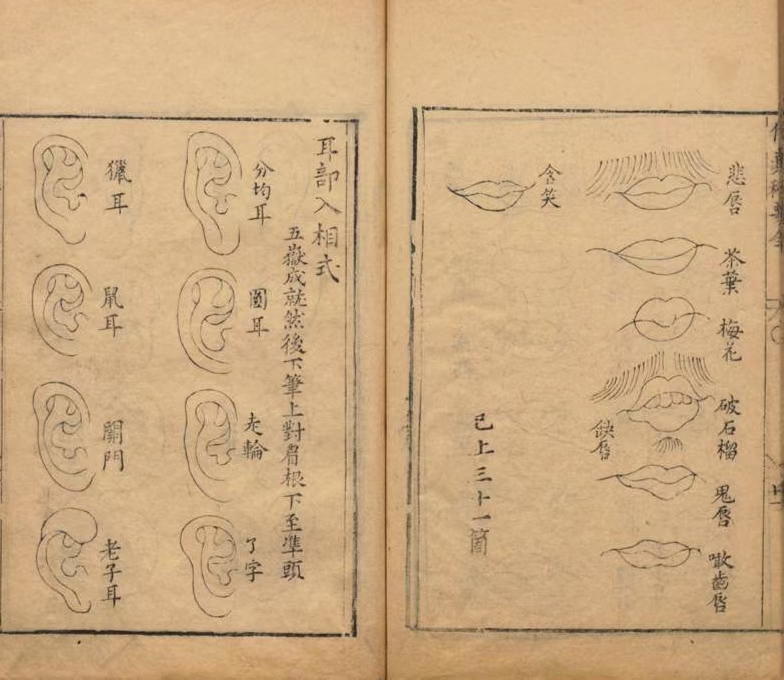 悲唇
茶葉
梅花
破石榴
缺唇
鬼唇
齒唇
含笑
已上三十一箇
耳部入相式
五嶽成就然後下筆上對眉根下至準頭
分均耳
圓耳
走輪
了字
獵耳
鼠耳
開門
老子耳